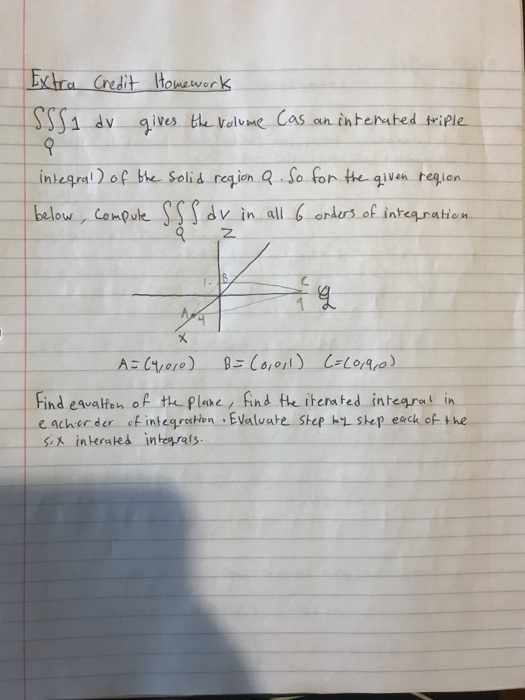 Extra Credit Homework
∫∫∫ 1 dv gives the volume (as an interated triple
Q
integral) of the solid region Q. So for the given region
below, Compute ∫∫∫ dv in all 6 orders of integration
Q
Z
1 B
C
A 4 9 y
X
A=(4,0,0) B=(0,0,1) C=(0,9,0)
Find equation of the plane, find the iterated integral in
each order of integration. Evaluate step by step each of the
six interated integrals.